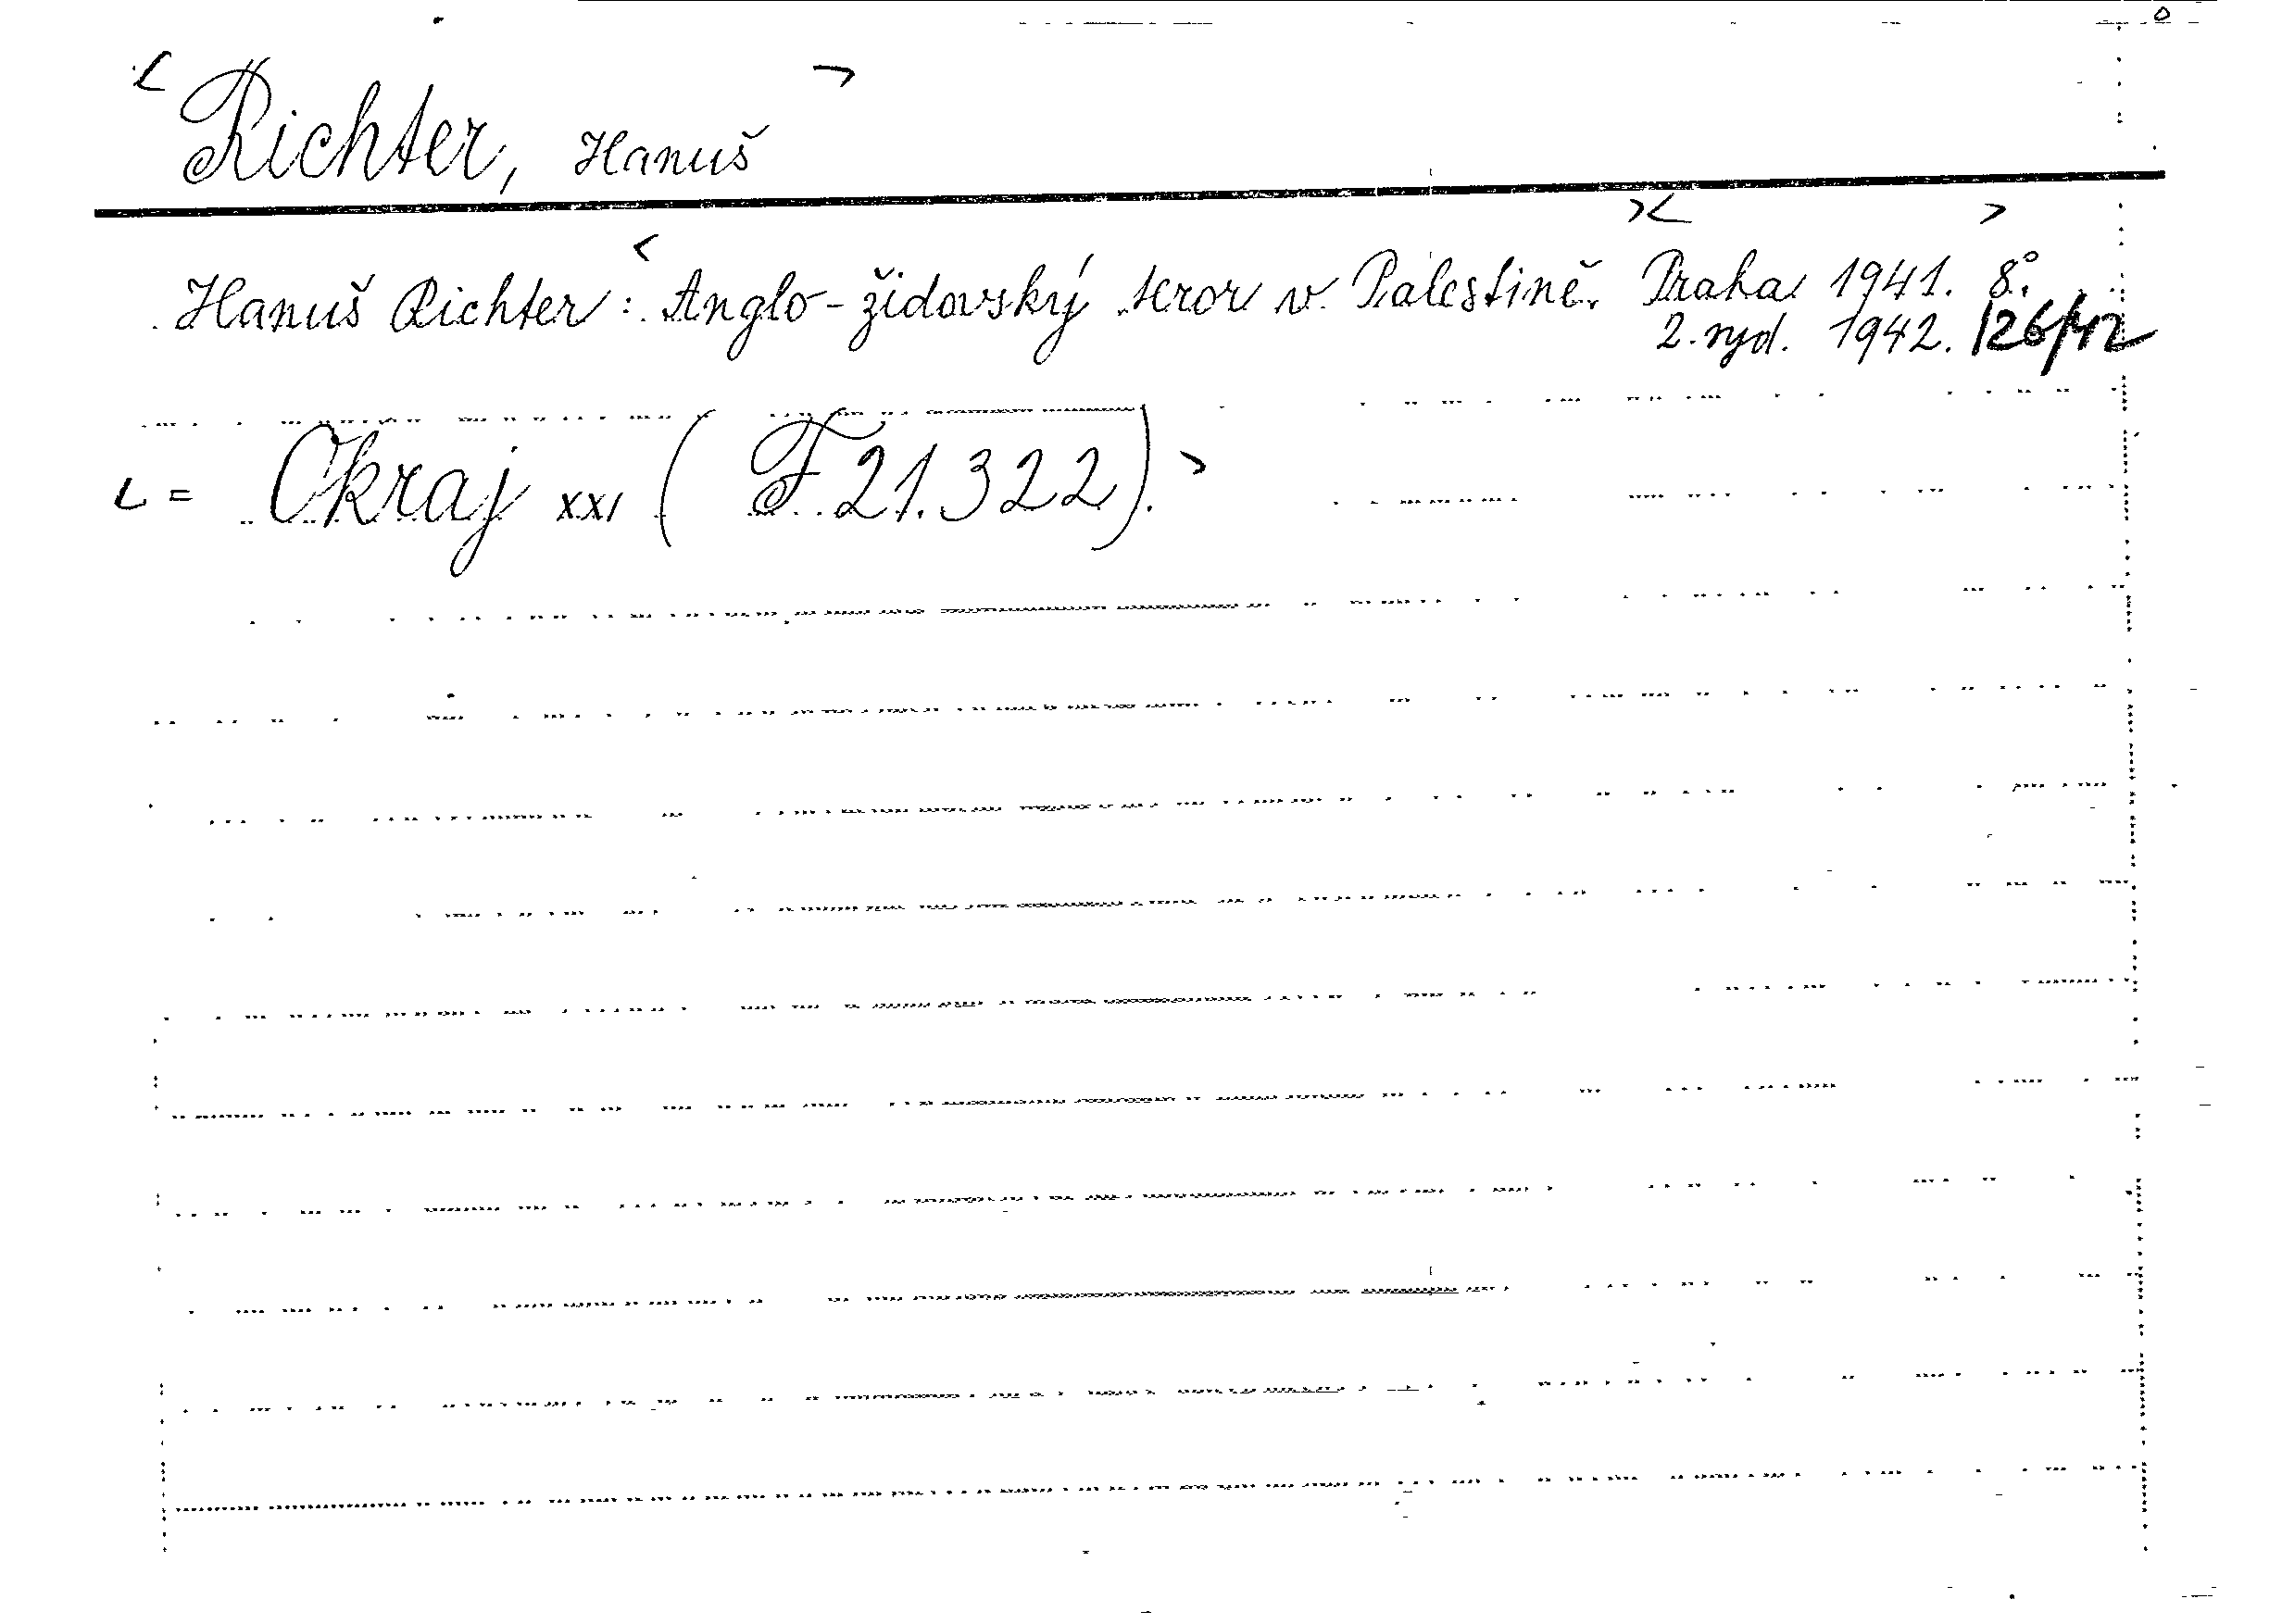 Richter, Hanuš
Hanuš Richter: Anglo-židovský teror v Palestině. Praha 1941. 8°.
2. vyd. 1942. 126/42
= Okraj XXI (F 21.322).